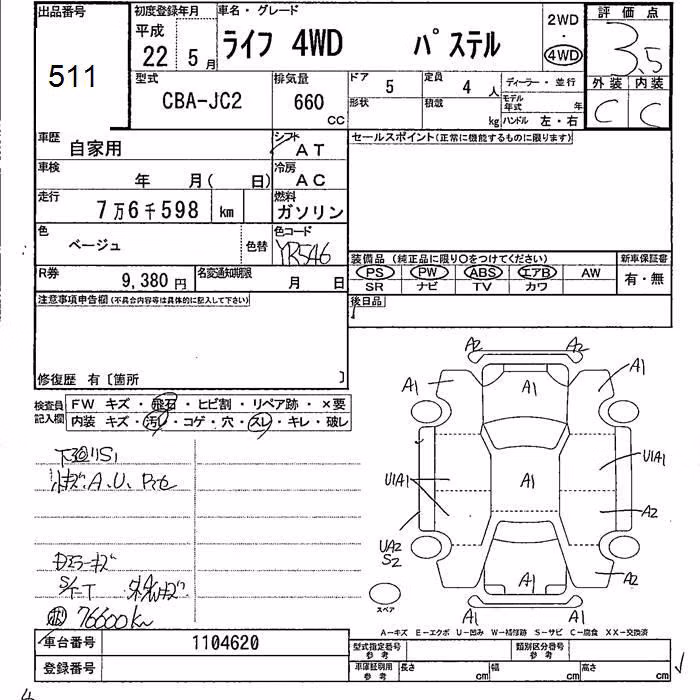 出品番号 初度登録年月 車名・グレード 2WD 評価点
平成 ・
22 5月 ライフ 4WD パステル 4WD 3.5
511
型式 排気量 ドア 5 定員 4人 ディーラー・並行 外装 内装
CBA-JC2 660 CC 形状 積載 kg モデル年式 年 C C
ハンドル 左・右
車歴 自家用 シフト AT セールスポイント(正常に機能するものに限ります)
車検 年 月( 日) 冷房 AC
走行 7万6千598 km 燃料 ガソリン
色 ベージュ 色替 色コード YR546
装備品(純正品に限り○をつけてください) 新車保証書
R券 9,380円 名変通知期限 月 日 PS PW ABS エアB AW 有・無
SR ナビ TV カワ
注意事項申告欄(不具合内容等は具体的に記入して下さい) 後日品
修復歴 有〔箇所 〕
検査員記入欄 FW キズ・飛石・ヒビ割・リペア跡・×要
内装 キズ・汚れ・コゲ・穴・スレ・キレ・破レ
A2 A2
A1 A1 A1
U1A1
U1A1 A1
A2
UA2
S2
A1 A2
A1 A1
スペア
下回りS1
A.U.
ミラーキズ
76600km
A-キズ E-エクボ U-凹み W-補修跡 S-サビ C-腐食 XX-交換済
車台番号 1104620 型式指定番号 参考 類別区分番号 参考
登録番号 車庫証明用 参考 長さ cm 幅 cm 高さ cm